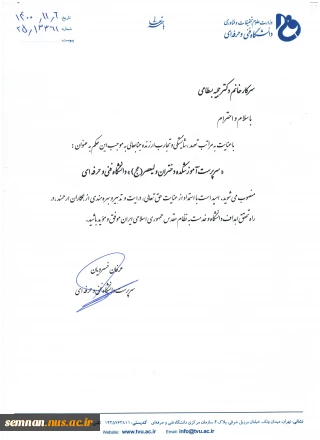 وزارت علوم تحقیقات و فناوری
دانشگاه فنی و حرفه‌ای
تاریخ ۱۴۰۰/۱۱/۶
شماره ۲۵/۱۳۳۶۱
پیوست
سرکار خانم دکتر بسطامی
با سلام و احترام
با عنایت به مراتب تعهد، شایستگی و تجارب ارزنده جنابعالی به موجب این حکم به عنوان:
« سرپرست آموزشکده دختران ولیعصر(عج)» دانشگاه فنی و حرفه ای
منصوب می شوید. امید است با استمداد از عنایت حق تعالی، درایت و تدبیر و بهره مندی از همکاران ارجمند، در
راه تحقق اهداف دانشگاه و خدمت به نظام مقدس جمهوری اسلامی ایران موفق و مؤید باشید.
عرفان خسرویان
سرپرست دانشگاه فنی و حرفه ای
نشانی: تهران، میدان ونک، خیابان برزیل شرقی، پلاک ۴ سازمان مرکزی دانشگاه فنی و حرفه‌ای
Website: www.tvu.ac.ir Email: info@tvu.ac.ir
semnan.nus.ac.ir